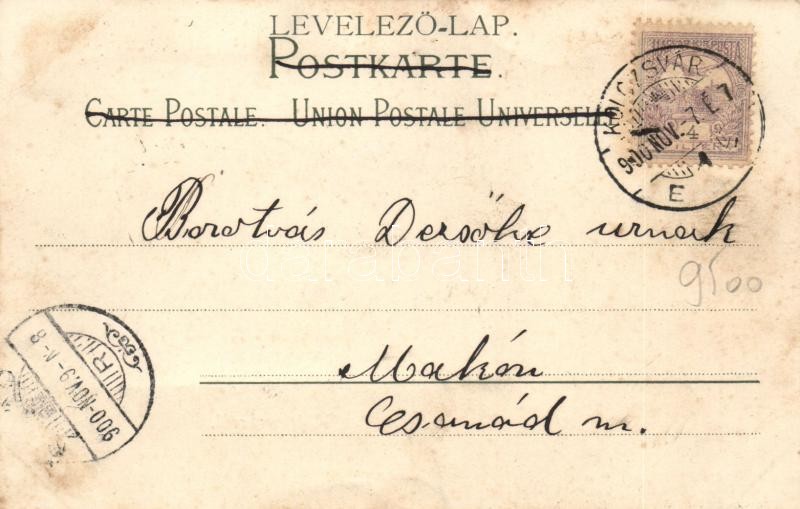 LEVELEZŐ-LAP.
POSTKARTE.
CARTE POSTALE. UNION POSTALE UNIVERSELLE
KOLOZSVÁR
900 NOV. 7. E 7
E
Borotvás Dersőke urnak
9500
Makón
Csanád m.
900-NOV 9-N-8